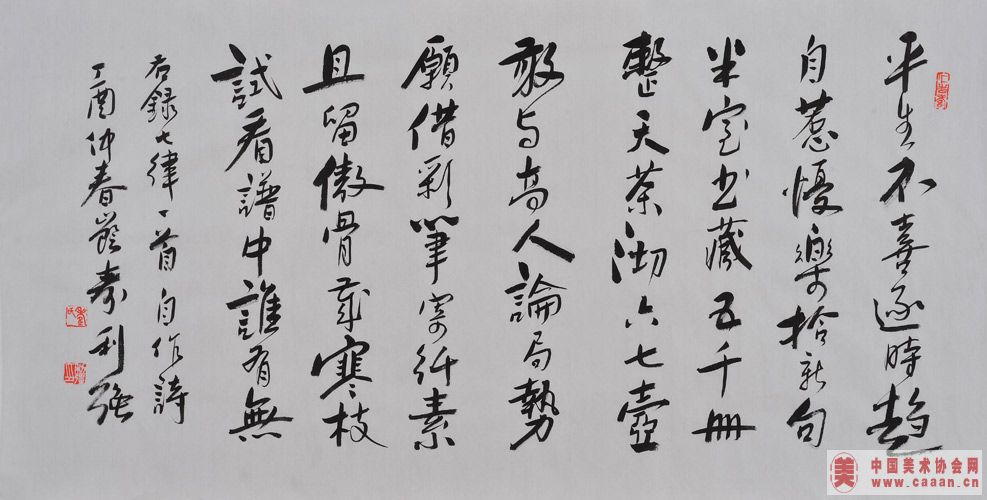 平生不喜逐時趨
自惹憂樂拾新句
半室書藏五千冊
整天茶沏六七壺
敢与高人論局勢
願借彩筆寄纸素
且留傲骨
寒枝
試看譜中誰有無
右錄七律一首自作詩
丁酉仲春
秦利強
中国美术协会网
www.caaan.cn